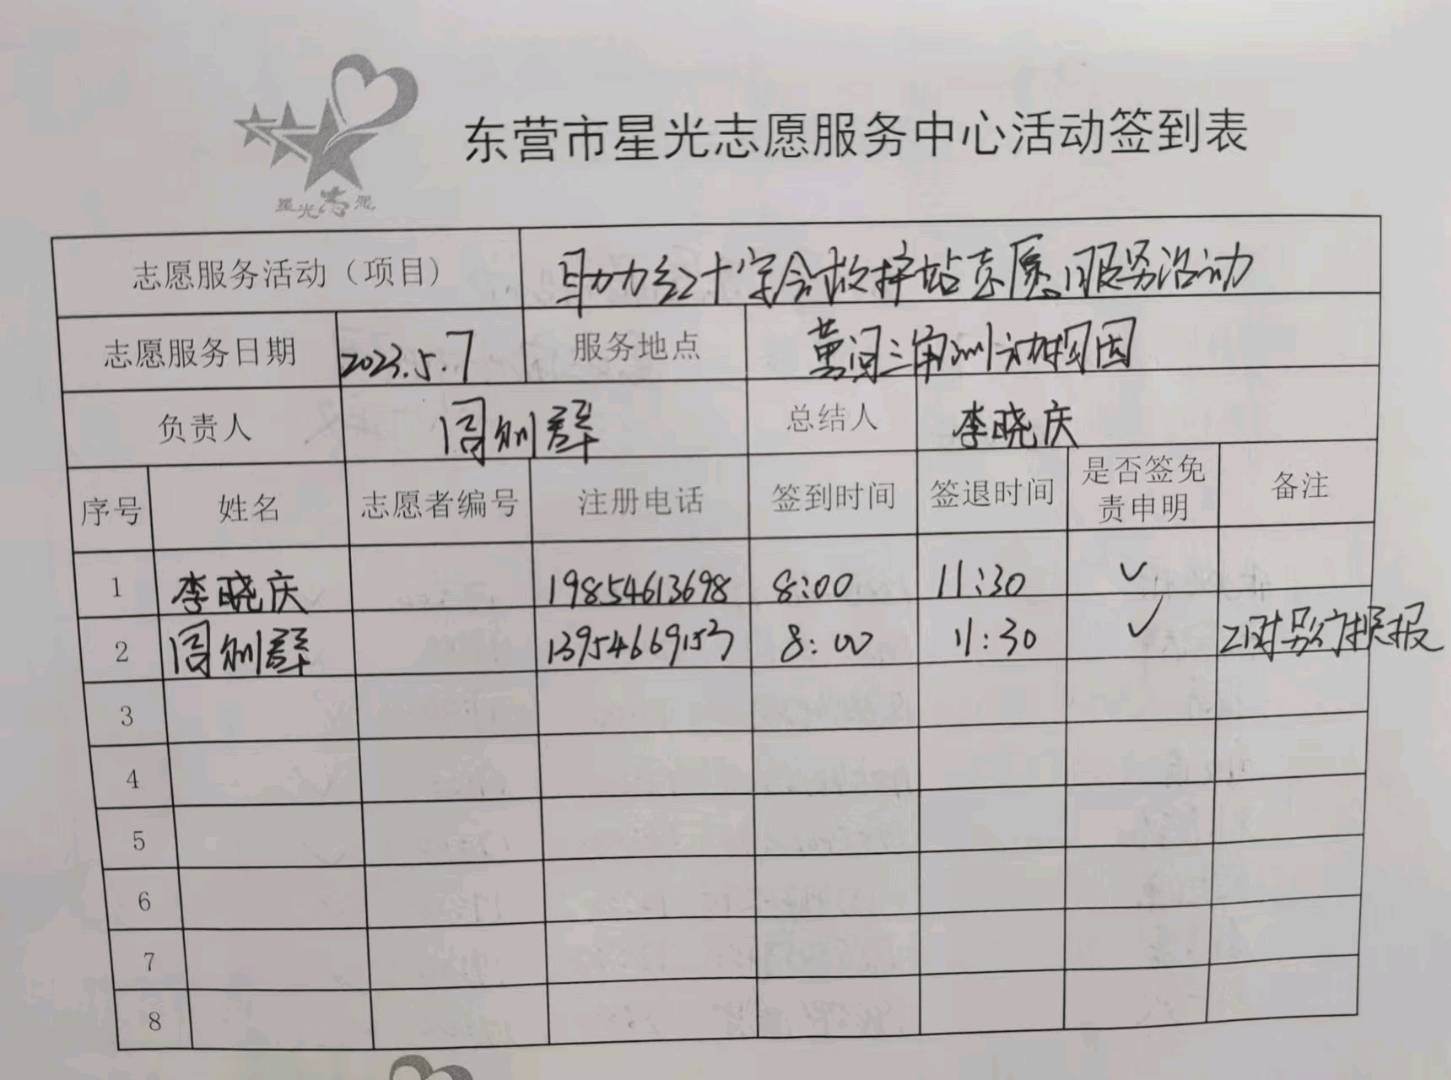 星光志愿
东营市星光志愿服务中心活动签到表
志愿服务活动（项目） 助力红十字会救护站志愿服务活动
志愿服务日期 2023.5.7 服务地点 黄河三角洲动物园
负责人 总结人 李晓庆
序号 姓名 志愿者编号 注册电话 签到时间 签退时间 是否签免责申明 备注
1 李晓庆 19854613698 8:00 11:30 ✓
2 13954669153 8:00 11:30 ✓
3
4
5
6
7
8